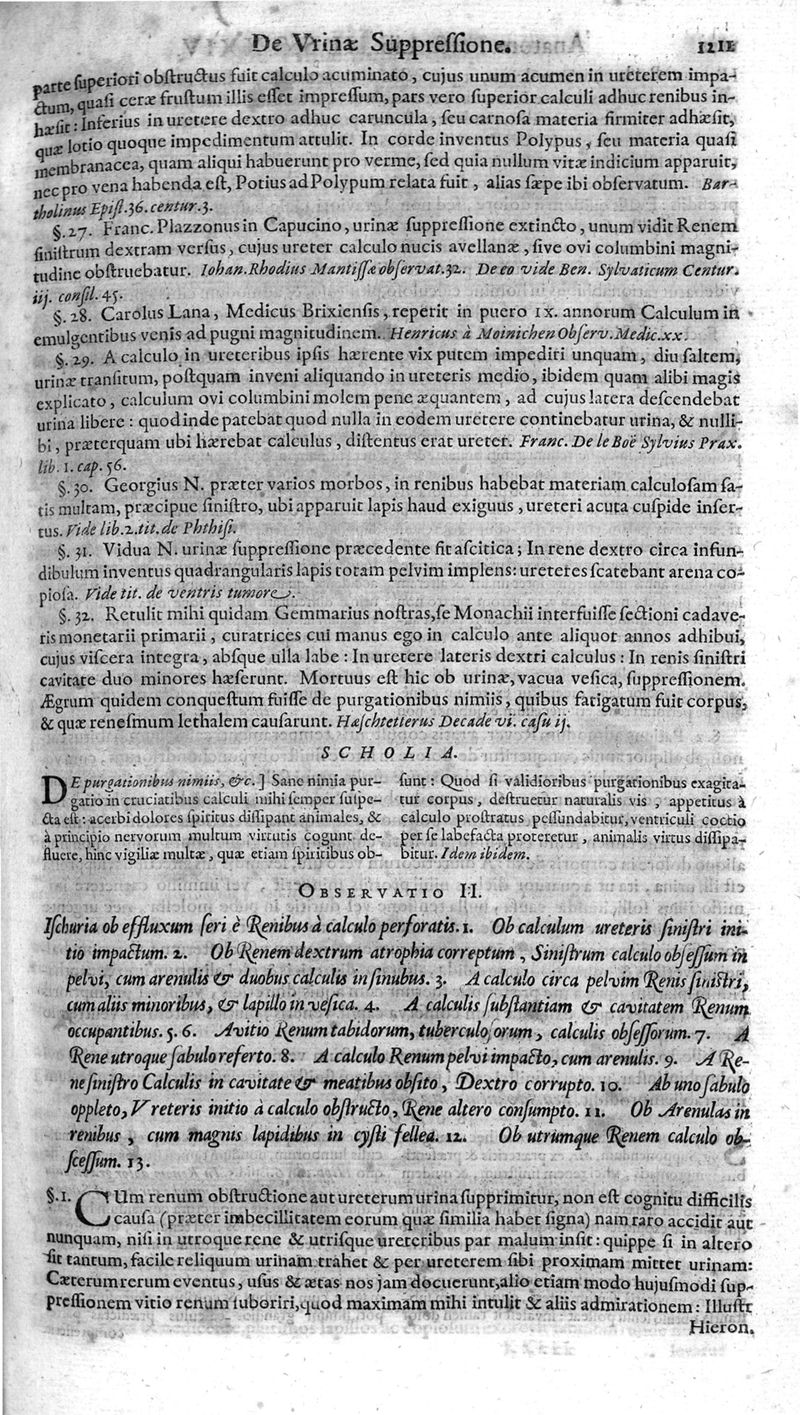 De Vrinæ Suppreſſione. 1211
parte ſuperiori obſtructus fuit calculo acuminato, cujus unum acumen in ureterem impa-
ctum, quaſi ceræ fruſtum illis eſſet impreſſum, pars vero ſuperior calculi adhuc renibus in-
hæſit: Inferius in uretere dextro adhuc caruncula, ſeu carnoſa materia firmiter adhæſit,
quæ lotio quoque impedimentum attulit. In corde inventus Polypus, ſeu materia quaſi
membranacea, quam aliqui habuerunt pro verme, ſed quia nullum vitæ indicium apparuit,
nec pro vena habenda eſt, Potius ad Polypum relata fuit, alias ſæpe ibi obſervatum. Bar-
tholinus Epiſt.36. centur.3.
§.27. Franc. Plazzonus in Capucino, urinæ ſuppreſſione extincto, unum vidit Renem
ſiniſtrum dextram verſus, cujus ureter calculo nucis avellanæ, ſive ovi columbini magni-
tudine obſtruebatur. Iohan. Rhodius Mantiſſæ obſervat.32. De eo vide Ben. Sylvaticum Centur.
iij. conſil. 45.
§. 28. Carolus Lana, Medicus Brixienſis, reperit in puero IX. annorum Calculum in
emulgentibus venis ad pugni magnitudinem. Henricus à Moinichen Obſerv. Medic. xx.
§. 29. A calculo in ureteribus ipſis hærente vix putem impediri unquam, diu ſaltem,
urinæ tranſitum, poſtquam inveni aliquando in ureteris medio, ibidem quam alibi magis
explicato, calculum ovi columbini molem pene æquantem, ad cujus latera deſcendebat
urina libere: quod inde patebat quod nulla in eodem uretere continebatur urina, & nulli-
bi, præterquam ubi hærebat calculus, diſtentus erat ureter. Franc. De le Boë Sylvius Prax.
lib. 1. cap. 56.
§. 30. Georgius N. præter varios morbos, in renibus habebat materiam calculoſam ſa-
tis multam, præcipue ſiniſtro, ubi apparuit lapis haud exiguus, ureteri acuta cuſpide inſer-
tus. Vide lib.2. tit. de Phthiſi.
§. 31. Vidua N. urinæ ſuppreſſione præcedente fit aſcitica; In rene dextro circa infun-
dibulum inventus quadrangularis lapis totam pelvim implens: ureteres ſcatebant arena co-
pioſa. Vide tit. de ventris tumore.
§. 32. Retulit mihi quidam Gemmarius noſtras, ſe Monachii interfuiſſe ſectioni cadave-
ris monetarii primarii, curatrices cui manus ego in calculo ante aliquot annos adhibui,
cujus viſcera integra, abſque ulla labe: In uretere lateris dextri calculus: In renis ſiniſtri
cavitate duo minores hæſerunt. Mortuus eſt hic ob urinæ, vacua veſica, ſuppreſſionem.
Ægrum quidem conqueſtum fuiſſe de purgationibus nimiis, quibus fatigatum fuit corpus,
& quæ reneſmum lethalem cauſarunt. Hæſchtetterus Decade vi. caſu ij.
SCHOLIA.
DE purgationibus nimiis, &c. ] Sane nimia pur-
gatio in cruciatibus calculi mihi ſemper ſuſpe-
cta eſt: acerbi dolores ſpiritus diſſipant animales, &
à principio nervorum multum virtutis cogunt de-
fluere, hinc vigiliæ multæ, quæ etiam ſpiritibus ob-
ſunt: Quod ſi validioribus purgationibus exagita-
tur corpus, deſtruetur naturalis vis, appetitus à
calculo proſtratus peſſundabitur, ventriculi coctio
per ſe labefacta proteretur, animalis virtus diſſipa-
bitur. Idem ibidem.
OBSERVATIO II.
Iſchuria ob effluxum ſeri è Renibus à calculo perforatis. 1. Ob calculum ureteris ſiniſtri ini-
tio impactum. 2. Ob Renem dextrum atrophia correptum, Siniſtrum calculo obſeſſum in
pelvi, cum arenulis & duobus calculis in ſinubus. 3. A calculo circa pelvim Renis ſiniſtri,
cum aliis minoribus, & lapillo in veſica. 4. A calculis ſubſtantiam & cavitatem Renum
occupantibus. 5. 6. A vitio Renum tabidorum, tuberculoſorum, calculis obſeſſorum. 7. A
Rene utroque ſabulo referto. 8. A calculo Renum pelvi impacto, cum arenulis. 9. A Re-
ne ſiniſtro Calculis in cavitate & meatibus obſito, Dextro corrupto. 10. Ab uno ſabulo
oppleto, Vreteris initio à calculo obſtructo, Rene altero conſumpto. 11. Ob Arenulas in
renibus, cum magnis lapidibus in cyſti fellea. 12. Ob utrumque Renem calculo ob-
ſceſſum. 13.
§.1. CUm renum obſtructione aut ureterum urina ſupprimitur, non eſt cognitu difficilis
cauſa (præter imbecillitatem eorum quæ ſimilia habet ſigna) nam raro accidit aut
nunquam, niſi in utroque rene & utriſque ureteribus par malum inſit: quippe ſi in altero
ſit tantum, facile reliquum urinam trahet & per ureterem ſibi proximam mittet urinam:
Cæterum rerum eventus, uſus & ætas nos jam docuerunt, alio etiam modo hujuſmodi ſup-
preſſionem vitio renum ſuboriri, quod maximam mihi intulit & aliis admirationem: Illuſtr
Hieron.